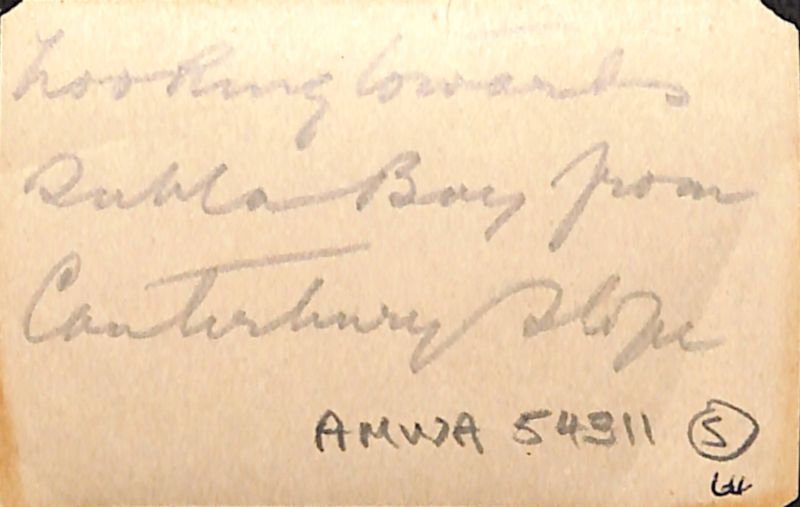 Looking towards
Suvla Bay from
Canterbury Slope
AMWA 54911 (5)